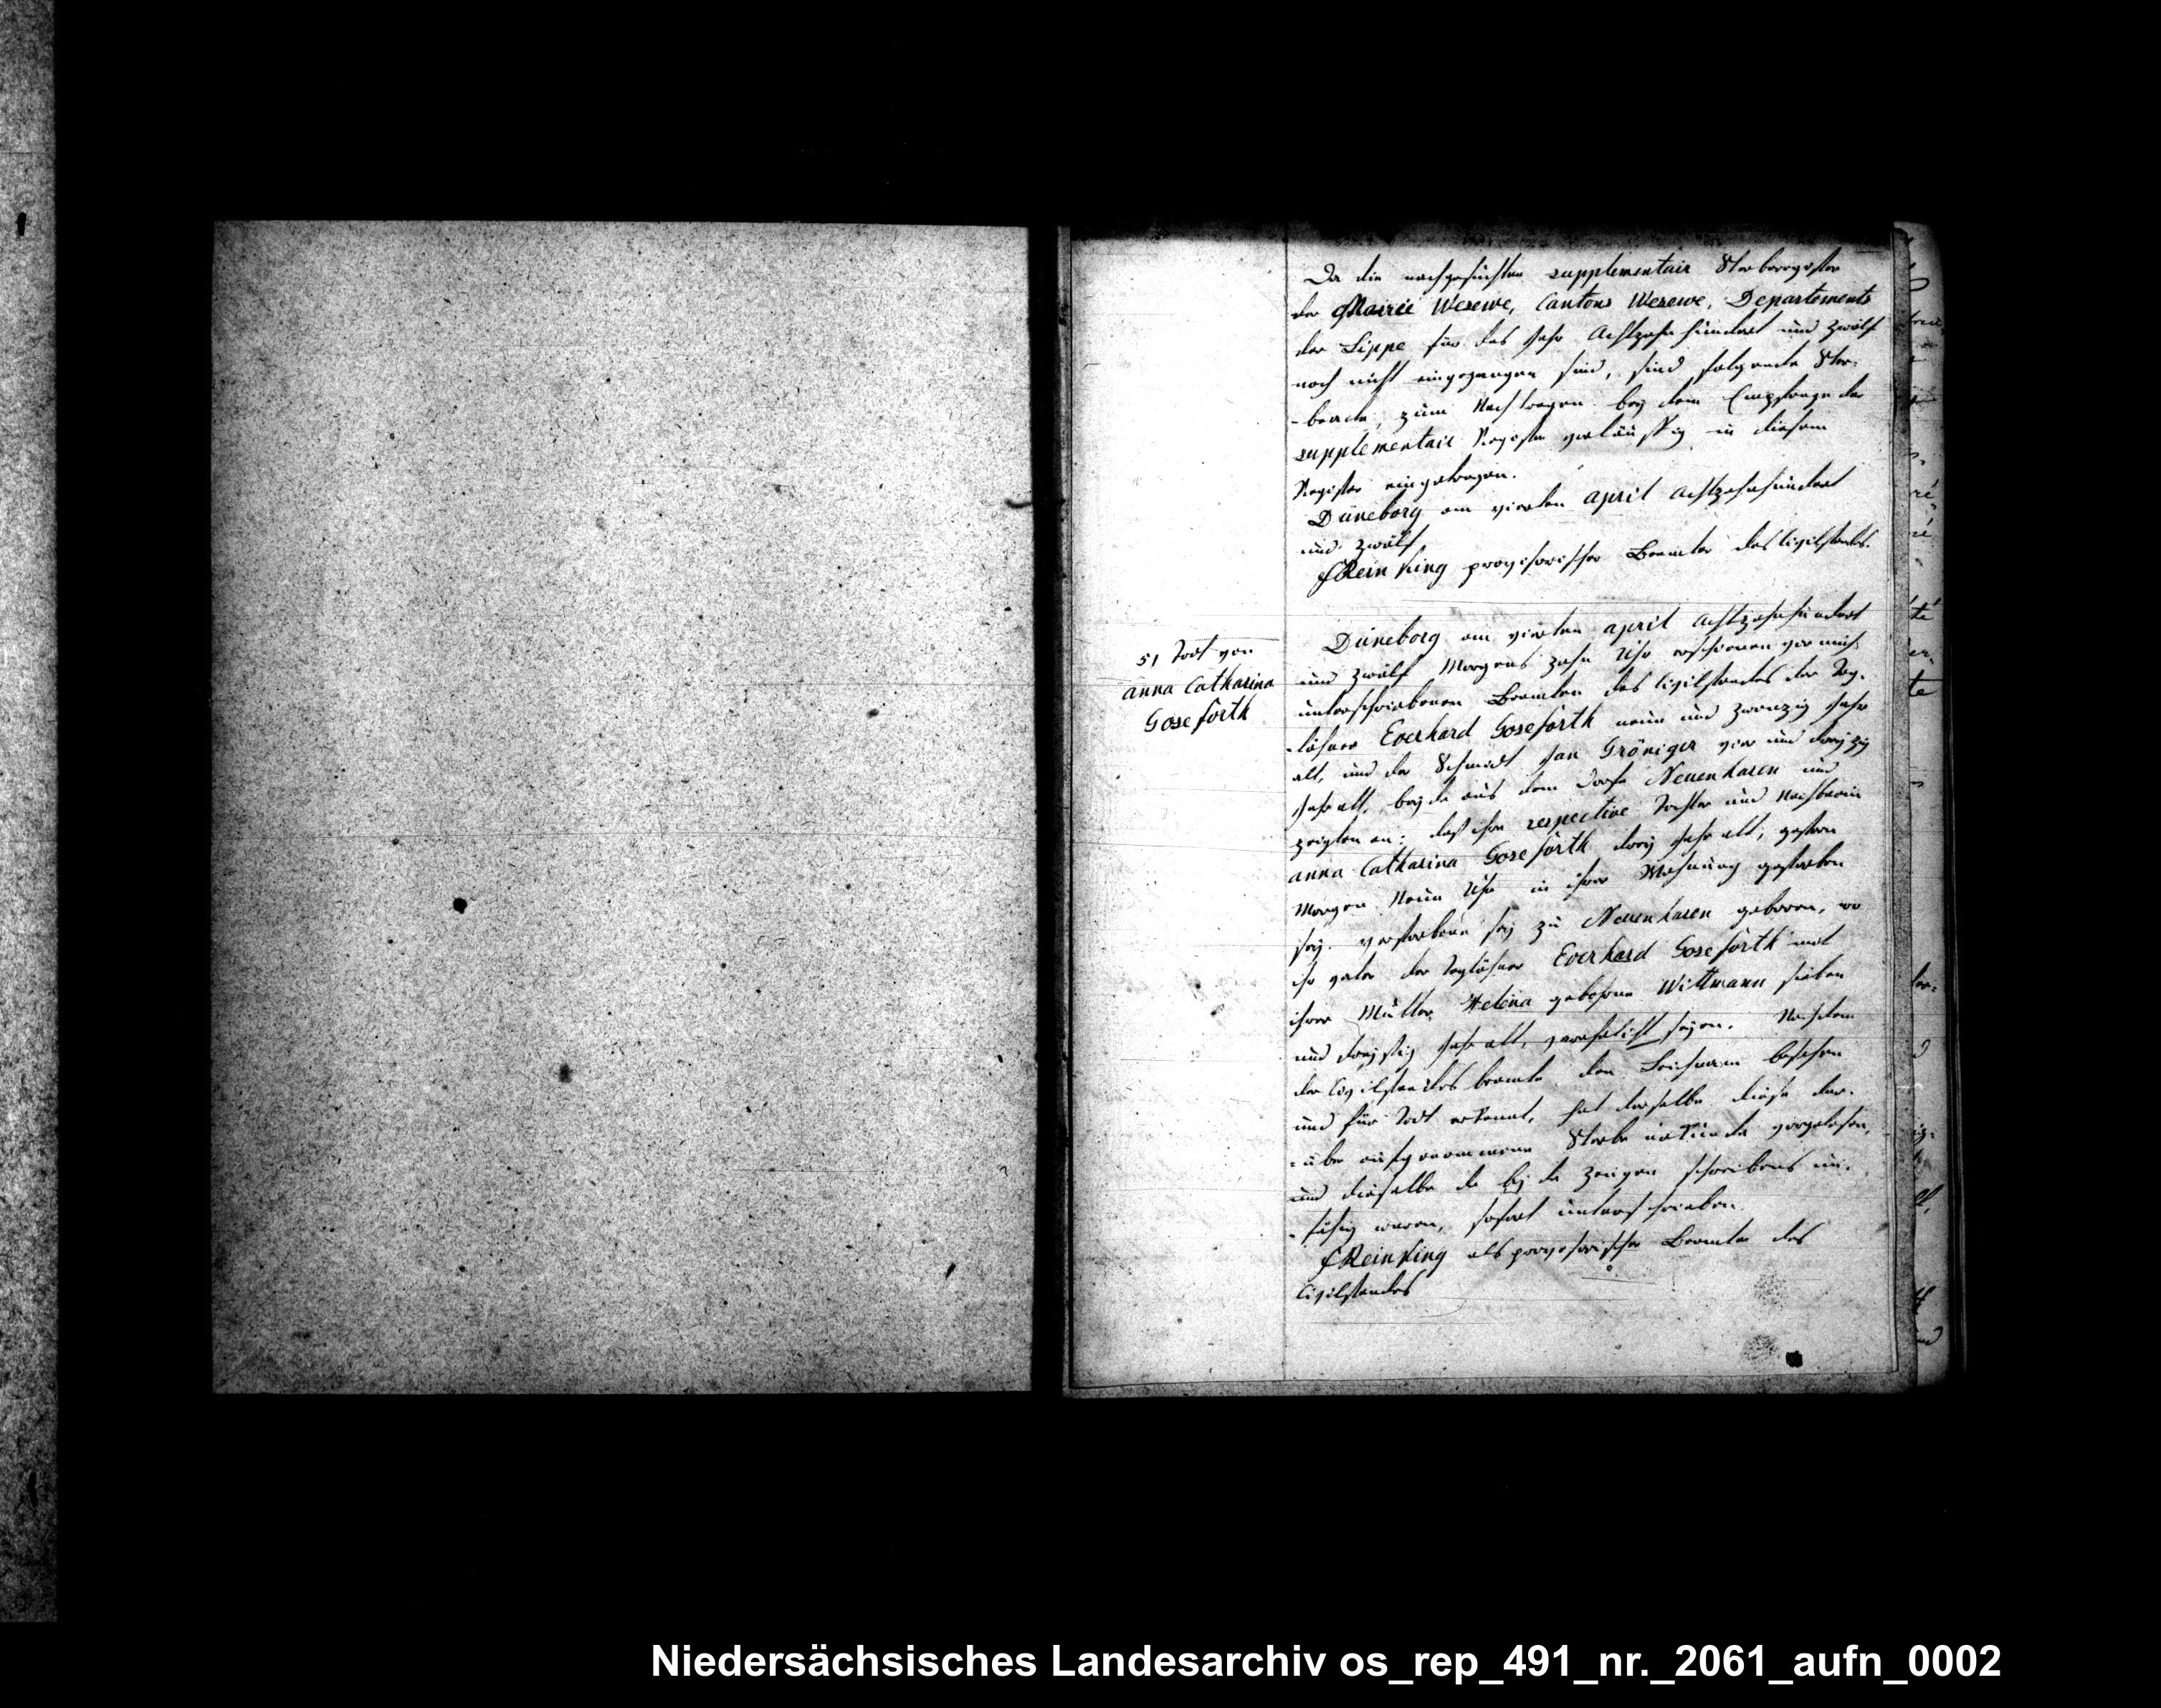 Da die nachgesuchten supplimentair Sterberegister
der Mairie Wesewe, Cantons Wesewe, Departements
der Lippe für das Jahr Achtzehnhundert und zwölf
noch nicht eingegangen sind, sind folgende Ster-
-beacte, zum Nachtragen bey dem Empfange der
supplementair Register vorläuffig in diesem
Register eingetragen.
Düneborg am vierten april Achtzehnhundert
und zwölf
Reinking provisorischer Beamter des Civilstandes.
51 Todt von
anna Catharina
Goseforth
Düneborg am vierten april Achtzehnhundert
und zwölf Morgens zehn Uhr erschienen vor mich
unterschriebenen Beamten des Civilstandes der Tag-
-löhner Everhard Goseforth neun und zwanzig Jahr
alt, und der Schmidt Jan Gröniger vier und dreyzig
Jahr alt, beyde aus dem Dorfe Neuenhasen und
zeigten an: daß ihre respective Tochter und Nachbarin
anna Catharina Goseforth drey Jahr alt, gestern
Morgen Neun Uhr in ihrer Wohnung gestorben
sey. verstorbene sey zu Neuenhasen geboren, wo
ihr vater der Taglöhner Everhard Goseforth mit
ihrer Mutter Helena gebohrne Wittmann sieben
und dreyssig Jahr alt, verehelicht seyen. Nachdem
der Civilstandesbeamte den Leichnam besehen
und für Todt erkennt, hat derselbe diese dar-
-über aufgenommene Sterbeurkunde vorgelesen,
und dieselbe da beyde Zeugen schreibens un-
-fähig waren, sofort unterschrieben.
Reinking als provisorischer Beamter des
Civilstandes
Niedersächsisches Landesarchiv os_rep_491_nr._2061_aufn_0002